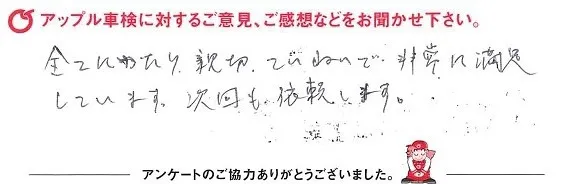 アップル車検に対するご意見、ご感想などをお聞かせ下さい。
全てにわたり、親切、ていねいで、非常に満足
しています。次回も、依頼します。
アンケートのご協力ありがとうございました。